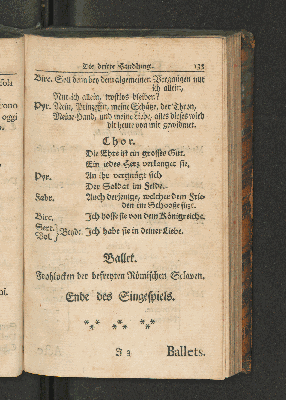 Die dritte Handlung. 135
Birc. Soll dann bey dem algemeinen Vergnügen nur
ich allein,
Nur ich allein, trostlos bleiben?
Pyr. Nein, Prinzeßin, meine Schütze, der Thron,
Meine Hand, und meine Liebe, alles dieses wird
dir heute von mir gewidmet.
Chor.
Die Ehre ist ein grosses Gut.
Ein jedes Herz verlanget sie,
Pyr. An ihr vergnügt sich
Der Soldat im Felde.
Fabr. Auch derjenige, welcher dem Frie-
den im Schoose sitzt.
Birc. Ich hoffe sie von dem Königreiche.
Sert.
Vol. } Beyde. Ich habe sie in deiner Liebe.
Ballet.
Frohlocken der befreyten Römischen Sclaven.
Ende des Singespiels.
I 3 Ballets.